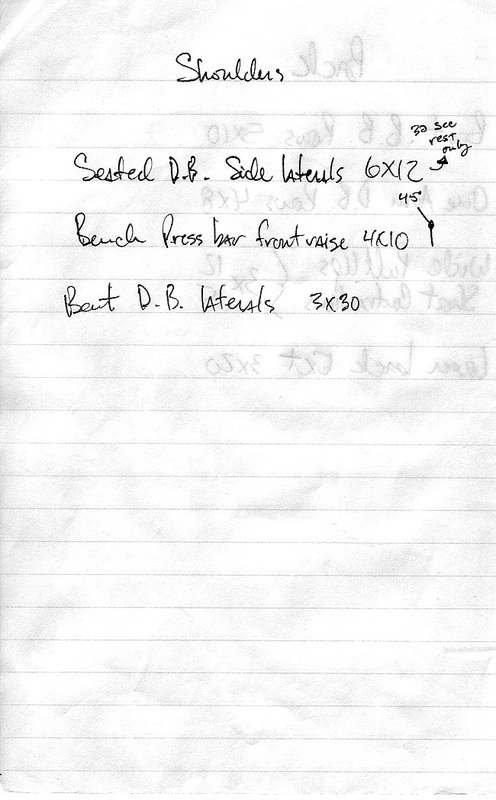 Shoulders
30 sec
rest
only
Seated D.B. Side laterals 6X12
45°
Bench Press bar front raise 4X10
Bent D.B. laterals 3X30